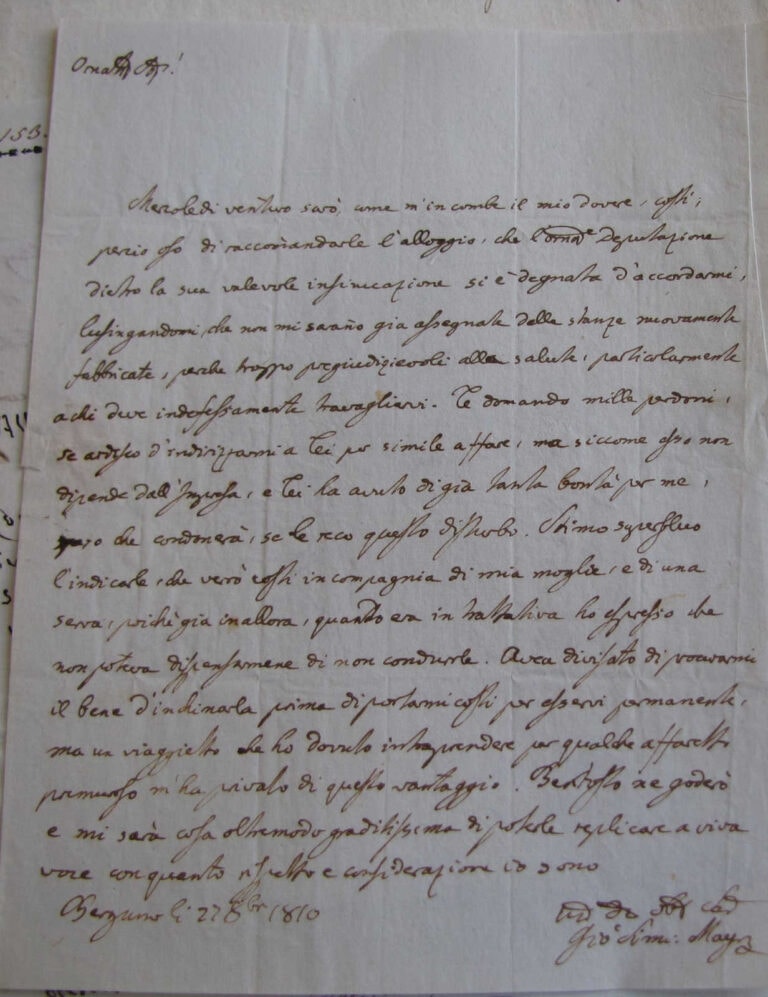 Ornat.mo Sig.r!
Mercoledi venturo sarò, come m'incombe il mio dovere, costi;
perciò oso di raccomandarle l'alloggio, che l'orna.e Deputazione
dietro la sua valevole insinuazione si è degnata d'accordarmi,
lusingandomi, che non mi sarano già assegnate delle stanze nuovamente
fabbricate, perche troppo pregiudizievoli alla salute, particolarmente
a chi deve indefessamente travagliarvi. Le domando mille perdoni,
se ardisco d'indirizzarmi a Lei per simile affare, ma siccome esso non
dipende dall'Impresa, e Lei ha avuto di già tanta bontà per me,
spero che condonerà, se le reco questo disturbo. Stimo superfluo
l'indicarle, che verrò costi in compagnia di mia moglie, e di una
serva, poichè già in allora, quando era in trattativa ho espresso che
non poteva dispensarmene di non condurle. Avea divisato di procurarmi
il bene d'inchinarla prima di portarmi costi per esservi permanente,
ma un viaggietto che ho dovuto intraprendere per qualche affaretto
premuroso m'ha privato di questo vantaggio. Bentosto ne goderò
e mi sarà cosa oltremodo graditissima di poterle replicare a viva
voce con quanto rispetto e considerazione io sono
Bergamo li 27 8bre 1810
Gio: Sim: Mayr
153.